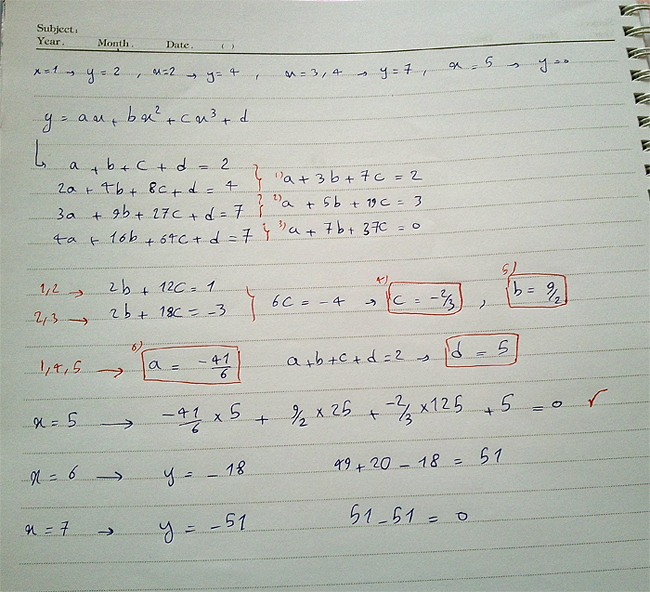 Subject:
Year. Month. Date. ( )
x=1 → y=2 , x=2 → y=4 , x=3,4 → y=7 , x=5 → y=0
y = ax + bx² + cx³ + d
a + b + c + d = 2
2a + 4b + 8c + d = 4 1) a + 3b + 7c = 2
3a + 9b + 27c + d = 7 2) a + 5b + 19c = 3
4a + 16b + 64c + d = 7 3) a + 7b + 37c = 0
1,2 → 2b + 12c = 1
2,3 → 2b + 18c = -3 } 6c = -4 → 4) c = -2/3 , 5) b = 9/2
1,4,5 → 6) a = -41/6 a+b+c+d=2 → d = 5
x = 5 → -41/6 × 5 + 9/2 × 25 + -2/3 × 125 + 5 = 0 ✓
x = 6 → y = -18 49+20-18 = 51
x = 7 → y = -51 51-51 = 0